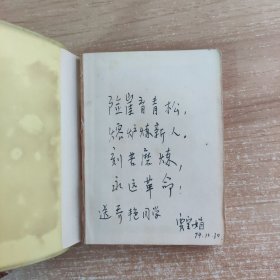 险崖育青松，
熔炉炼新人。
刻苦磨炼，
永远革命！
送 同学
79.11.30